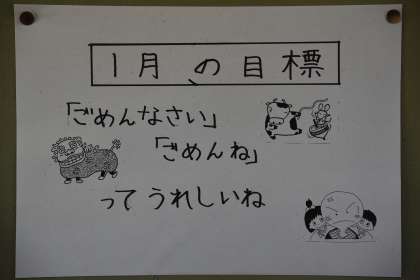 1月の目標
「ごめんなさい」
「ごめんね」
ってうれしいね